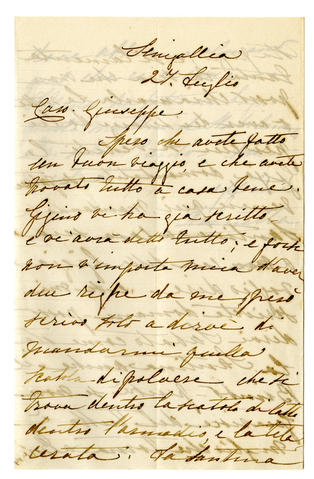 Senigallia
27. Luglio
Caro Giuseppe
Spero che avete fatto
un buon viaggio, e che avete
trovato tutto a casa bene.
Gigino vi ha già scritto
e vi avrà detto tutto; e forse
non v'importa mica d'aver
due righe da me però
scrivo solo a dirve, di
mandarmi quella
di polvere che si
trova dentro la scatola di latta
dentro l'armadio, e la tela
cerata. La Santina